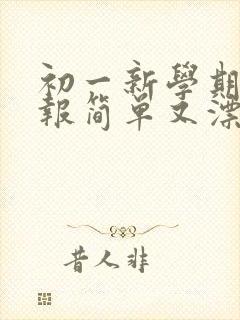 初一新學期
報简单又漂
昔人非